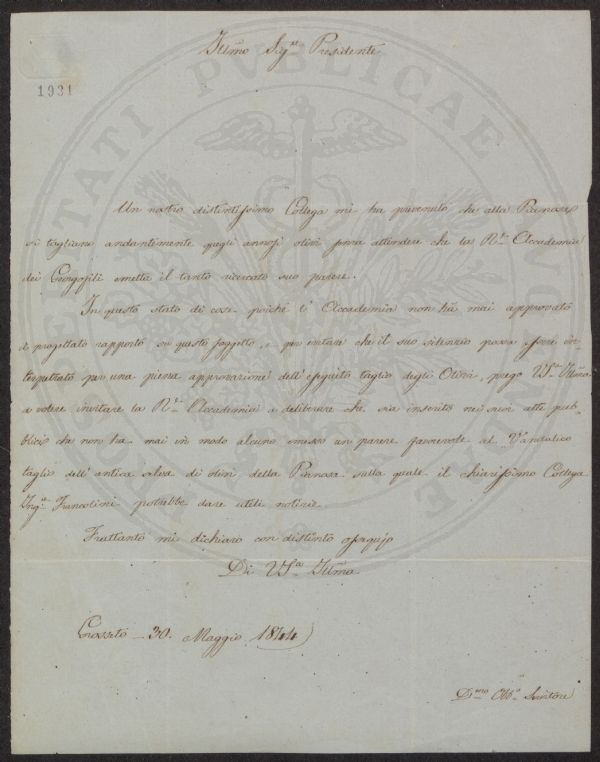 Illmo Sig.r Presidente
1931
PROSPERITATI PUBLICAE
Un nostro distintissimo Collega mi ha prevenuto che alla Pianosa
si tagliano andantemente quegli annosi olivi senza attendere che la R.le Accademia
dei Georgofili emetta il tanto ricercato suo parere.
In questo stato di cose poichè l'Accademia non ha mai approvato
il progettato rapporto su questo soggetto, e per evitare che il suo silenzio possa essere in-
terpettrato per una piena approvazione dell'eseguito taglio degli Olivi, prego VS.a Illma
a volere invitare la R.le Accademia a deliberare che sia inserito nei suoi atti pub-
blici che non ha mai in modo alcuno emesso un parere favorevole al Vandalico
taglio dell'antica selva di olivi della Pianosa sulla quale il chiarissimo Collega
Ing.re Francolini potrebbe dare utili notizie.
Frattanto mi dichiaro con distinto ossequio
Di VS.a Illma
Grosseto - 30. Maggio 1844
D.mo Obb.o Servitore